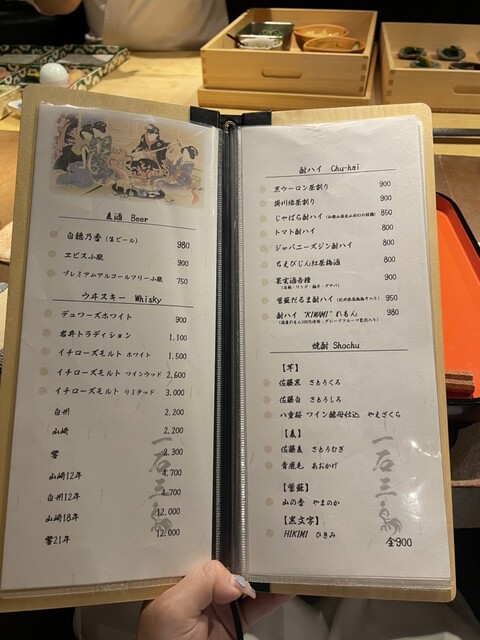 麦酒 Beer
白穂乃香 (生ビール) 980
ヱビス小瓶 900
プレミアムアルコールフリー小瓶 750
ウヰスキー Whisky
デュワーズホワイト 900
岩井トラディション 1,100
イチローズモルト ホワイト 1,500
イチローズモルト ツインウッド 2,600
イチローズモルト リミテッド 3,000
白州 2,200
山崎 2,200
響 2,300
山崎12年 4,700
白州12年 4,700
山崎18年 12,000
響21年 12,000
酎ハイ Chu-hai
黒ウーロン茶割り 900
掛川緑茶割り 900
じゃばら酎ハイ 850
トマト酎ハイ 800
ジャパニーズジン酎ハイ 800
ちえびじん紅茶梅酒 800
果実酒各種 900
紫蘇だるま酎ハイ 950
酎ハイ "KIWAMI" れもん 980
焼酎 Shochu
【芋】
佐藤黒 さとうくろ
佐藤白 さとうしろ
八重桜 ワイン酵母仕込 やえざくら
【麦】
佐藤麦 さとうむぎ
青鹿毛 あおかげ
【紫蘇】
山の香 やまのか
【黒文字】
HIKIMI ひきみ
全900